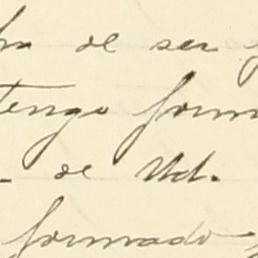 de ser
tengo form
- de Ud.
formado